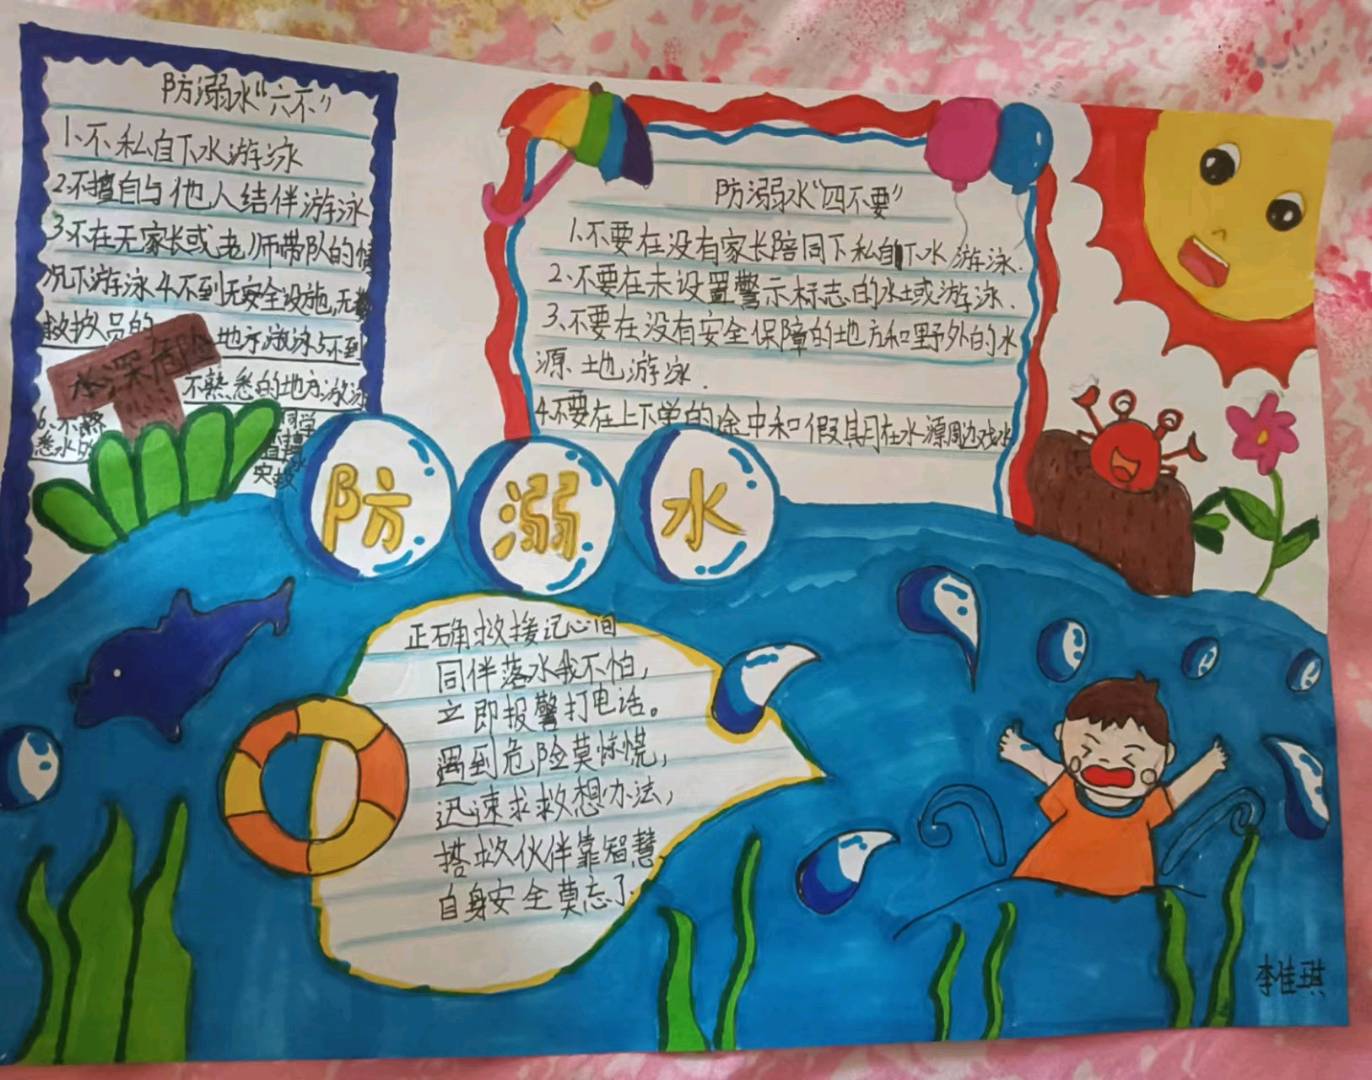 防溺水“六不”
1、不私自下水游泳
2、不擅自与他人结伴游泳
3、不在无家长或老师带队的情
况下游泳4、不到无安全设施，无
救护员的 地方游泳5不到
水深危险
不熟悉的地方游泳
6、不熟 同学
悉水的
防溺水“四不要”
1、不要在没有家长陪同下私自下水游泳.
2、不要在未设置警示标志的水域游泳.
3、不要在没有安全保障的地方和野外的水
源地游泳.
4、不要在上下学的途中和假期在水源周边戏水
防溺水
正确救援记心间
同伴落水我不怕，
立即报警打电话。
遇到危险莫惊慌，
迅速求救想办法，
搭救伙伴靠智慧
自身安全莫忘了.
李佳琪